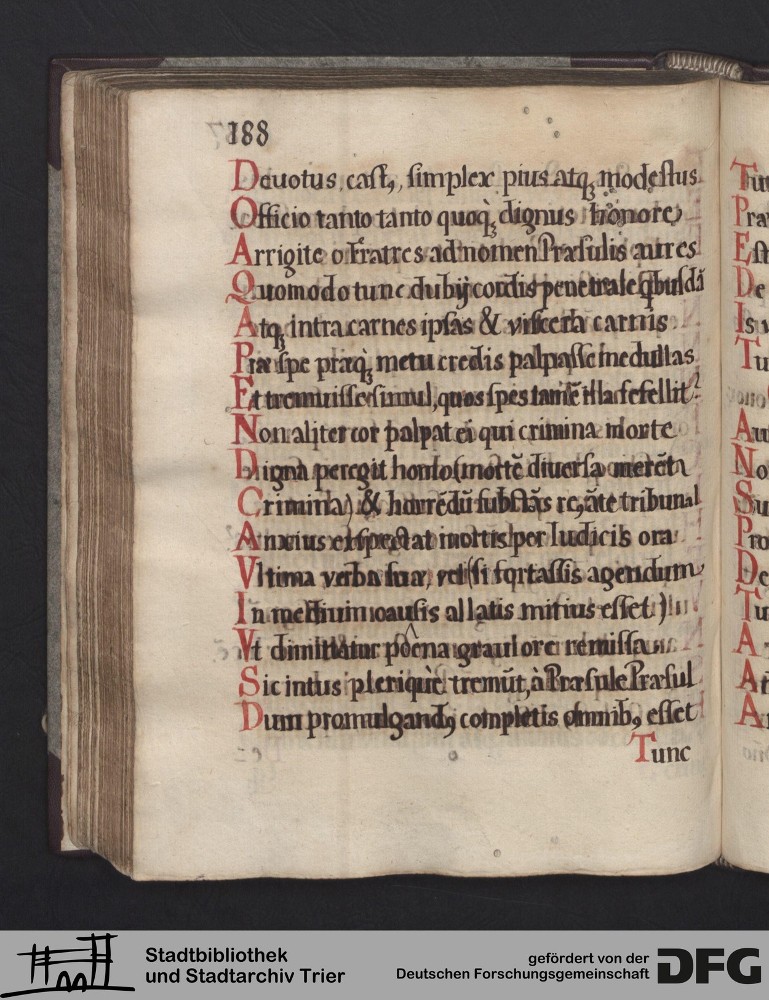 188
Deuotus, cast9, simplex pius atq; modestus
Officio tanto tanto quoq; dignus honore
Arrigite o Fratres ad nomen Præsulis aures
Quomodo tunc dubij cordis penetrale qbusdã
Atq; intra carnes ipsas & viscera carnis
Præ spe præq; metu credis palpasse medullas
Et tremuisse simul, quos spes tamẽ illa fefellit?
Non aliter cor palpat ei qui crimina morte
Digna peregit homo (mortẽ diuersa merẽt
Crimina) & horrẽdũ substãs tribunal
Anxius exspectat mortis per Iudicis ora
Vltima verba suæ, vel (si fortassis agendum
In medium causis allatis mitius esset)
Vt dimittatur pœna grauiore remissa
Sic intus pleriq; tremũt, à Præsule Præsul
Dum promulgand9 completis omnib9 esset
Tunc
Tu
Pra
Est
De
Is
Tu
Au
No
Su
Pro
De
Tu
A
At
A
Stadtbibliothek
und Stadtarchiv Trier
gefördert von der
Deutschen Forschungsgemeinschaft
DFG